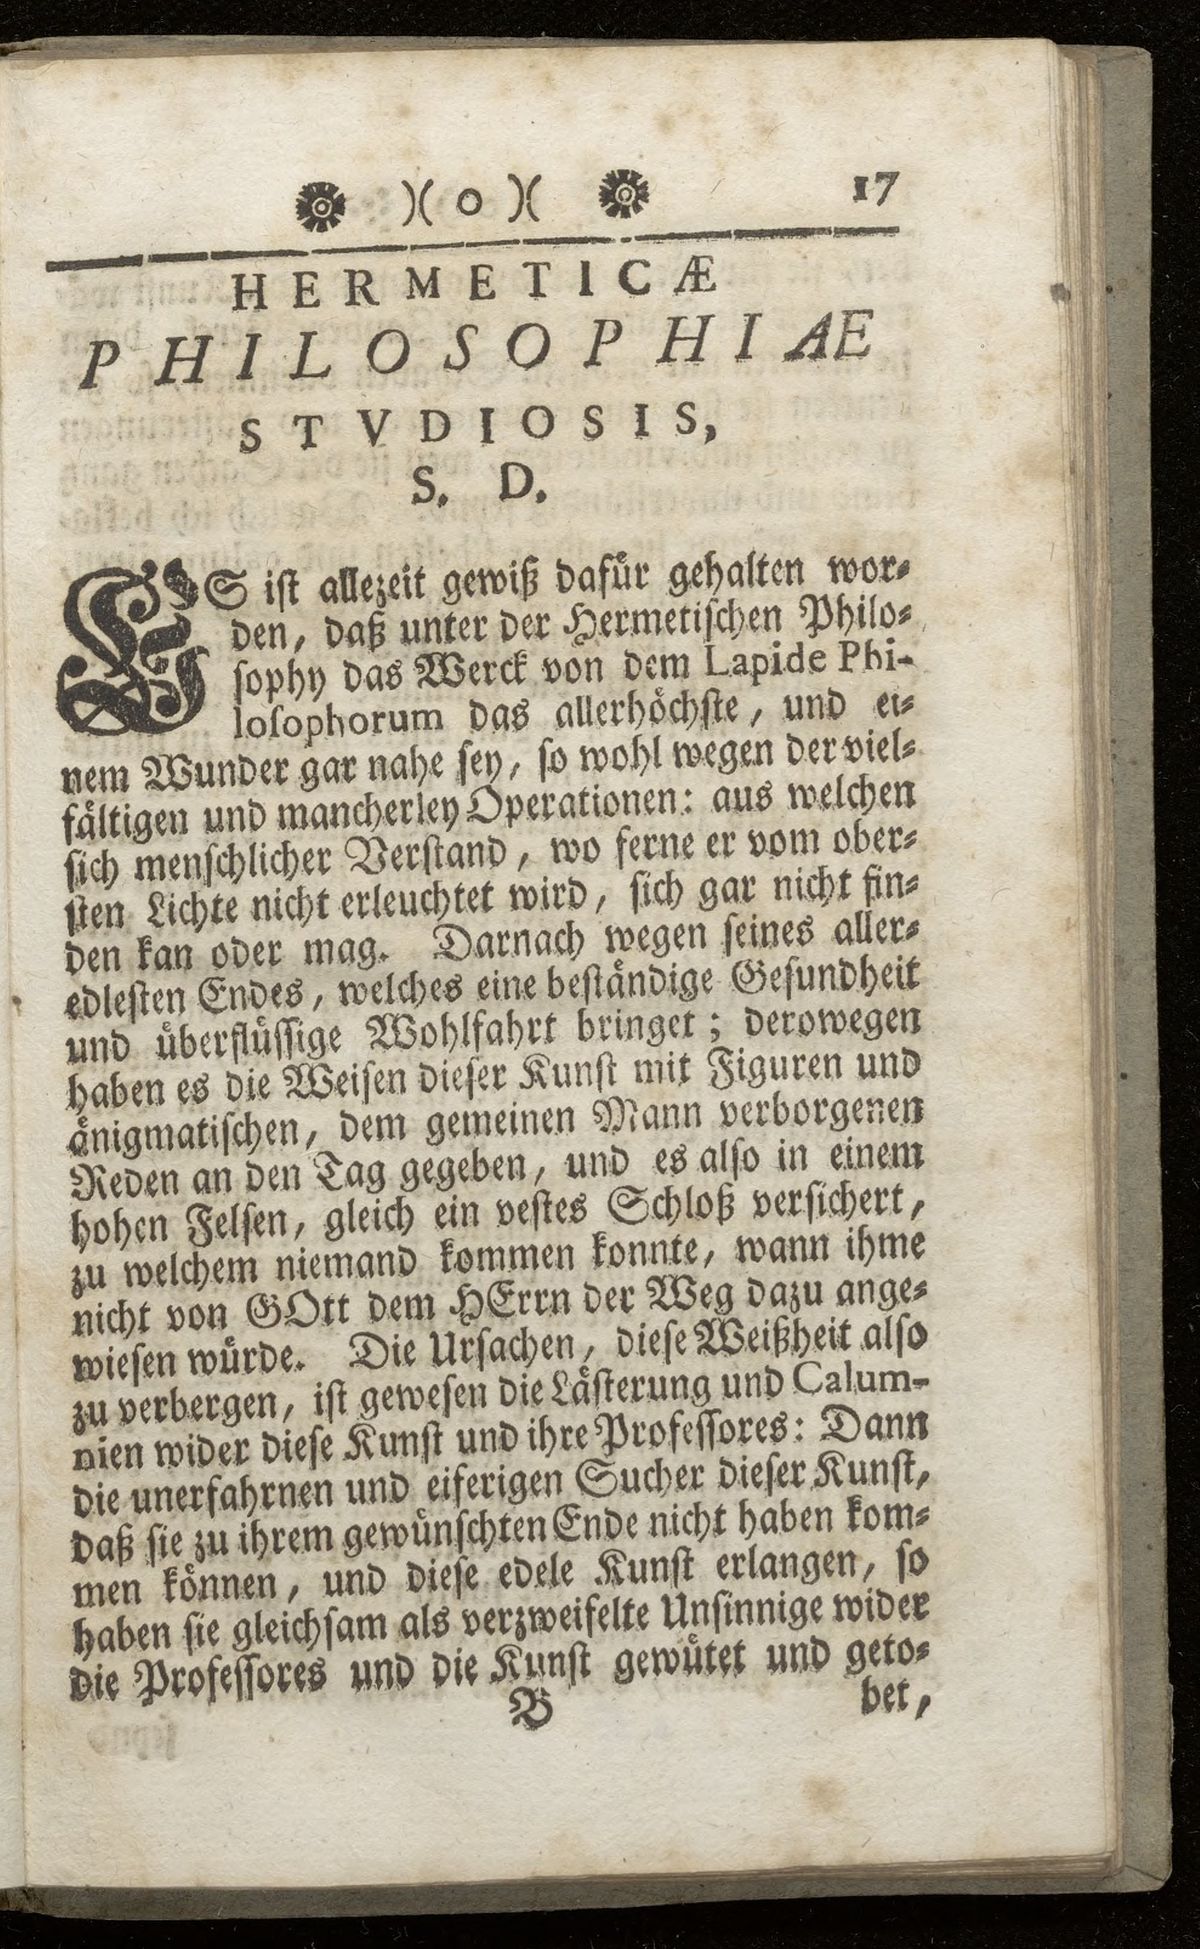 )( o )( 17
HERMETICÆ
PHILOSOPHIAE
STVDIOSIS,
S. D.
ES ist allezeit gewiß dafür gehalten wor-
den, daß unter der Hermetischen Philo-
sophy das Werck von dem Lapide Phi-
losophorum das allerhöchste, und ei-
nem Wunder gar nahe sey, so wohl wegen der viel-
fältigen und mancherley Operationen: aus welchen
sich menschlicher Verstand, wo ferne er vom ober-
sten Lichte nicht erleuchtet wird, sich gar nicht fin-
den kan oder mag. Darnach wegen seines aller-
edlesten Endes, welches eine beständige Gesundheit
und überflüssige Wohlfahrt bringet; derowegen
haben es die Weisen dieser Kunst mit Figuren und
änigmatischen, dem gemeinen Mann verborgenen
Reden an den Tag gegeben, und es also in einem
hohen Felsen, gleich ein vestes Schloß versichert,
zu welchem niemand kommen konnte, wann ihme
nicht von GOtt dem HErrn der Weg dazu ange-
wiesen würde. Die Ursachen, diese Weißheit also
zu verbergen, ist gewesen die Lästerung und Calum-
nien wider diese Kunst und ihre Professores: Dann
die unerfahrnen und eiferigen Sucher dieser Kunst,
daß sie zu ihrem gewünschten Ende nicht haben kom-
men können, und diese edele Kunst erlangen, so
haben sie gleichsam als verzweifelte Unsinnige wider
die Professores und die Kunst gewütet und geto-
B bet,